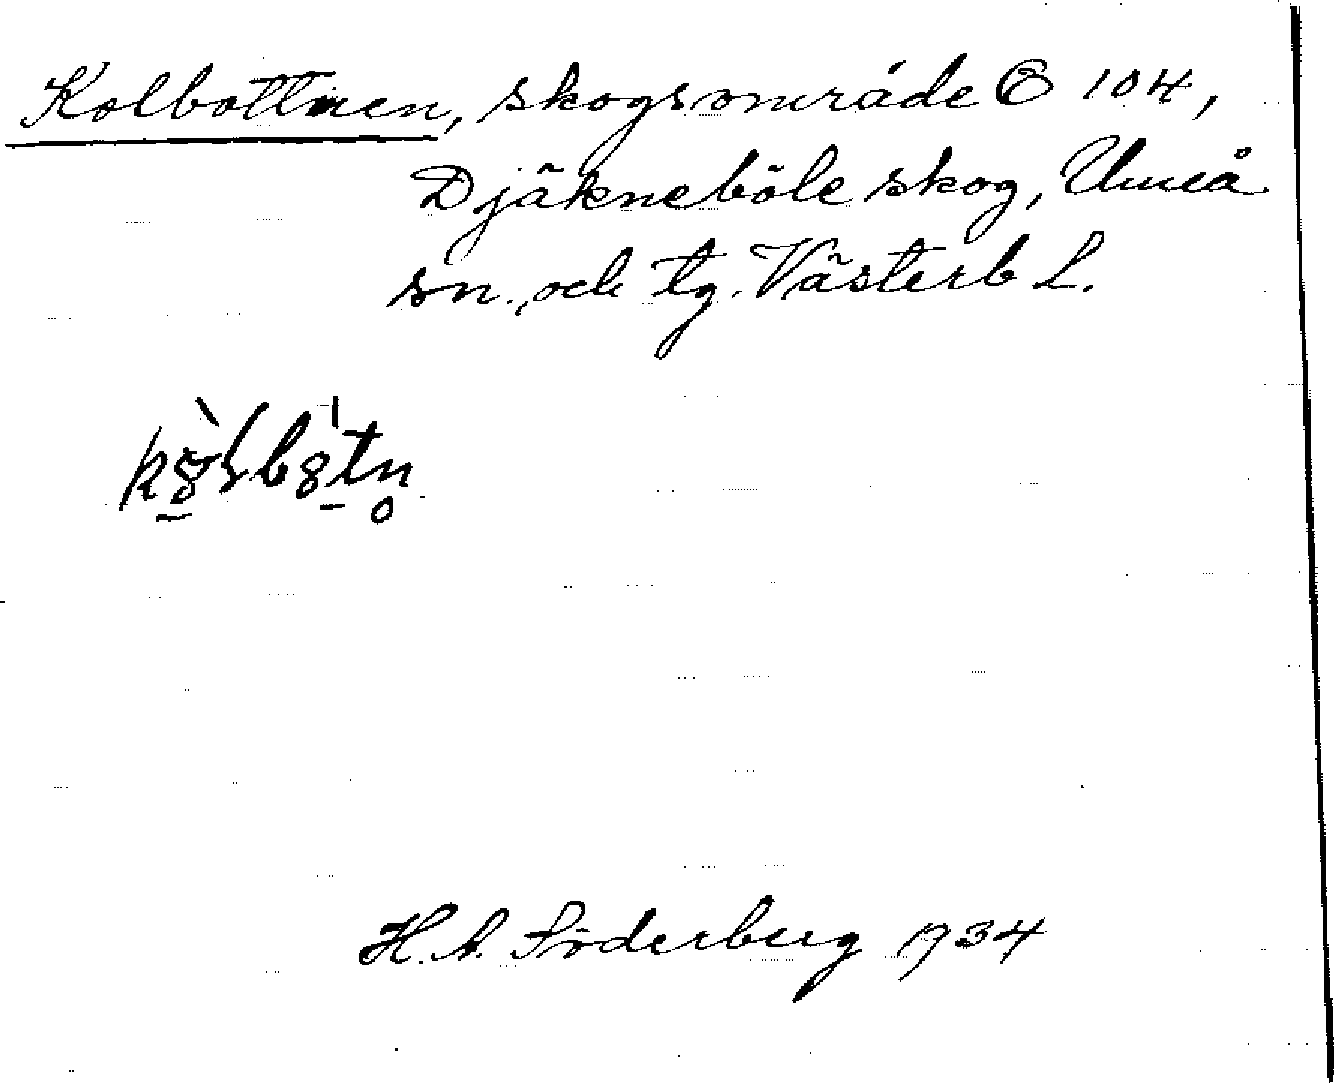 Kolbottnen, skogsområde E 104,
Djäkneböle skog, Umeå
sn. och tg. Västerb L.
H. A. Söderberg 1934